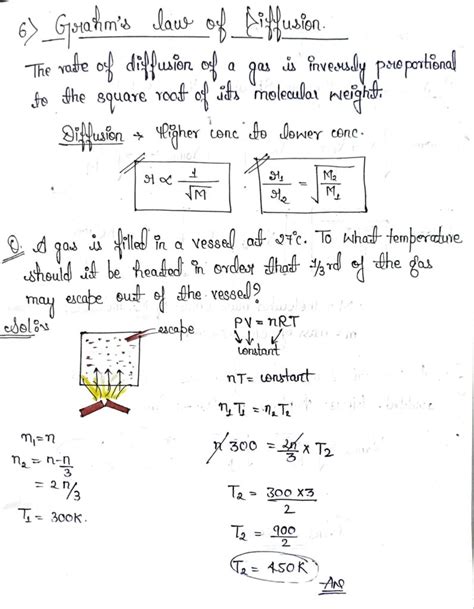 6) Grahm's law of Diffusion.
The rate of diffusion of a gas is inversly proportional
to the square root of its molecular weight.
Diffusion → Higher conc to lower conc.
r ∝ 1/√M    r₁/r₂ = √(M₂/M₁)
Q. A gas is filled in a vessel at 27°c. To what temperature
should it be heated in order that 1/3rd of the gas
may escape out of the vessel?
Sol:
escape
PV = nRT
constant
nT = constant
n₁T₁ = n₂T₂
n 300 = 2n/3 × T₂
T₂ = 300×3/2
T₂ = 900/2
T₂ = 450K
Ans
n₁ = n
n₂ = n-n/3
= 2n/3
T₁ = 300K.